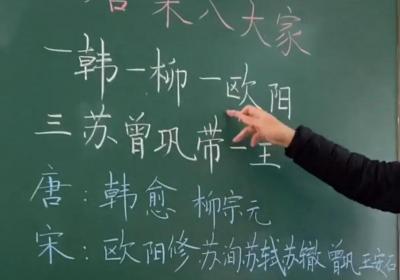 唐宋八大家
一韩一柳一欧阳
三苏曾巩带一王
唐：韩愈 柳宗元
宋：欧阳修 苏洵 苏轼 苏辙 曾巩 王安石